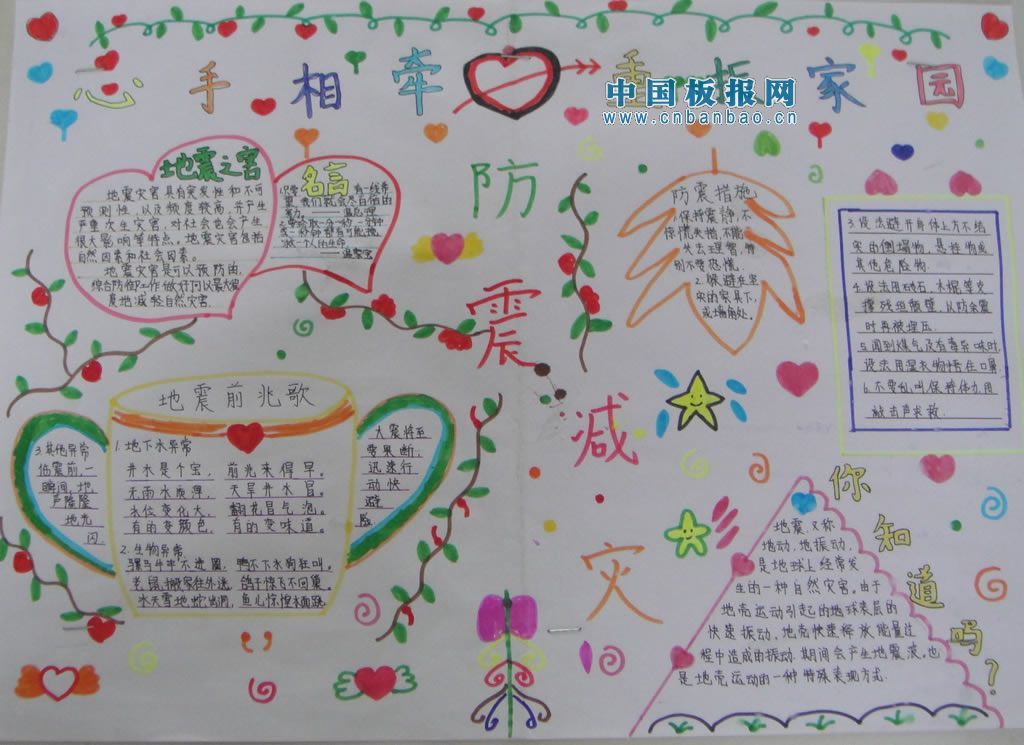 心手相牵 重振家园
中国板报网
www.cnbanbao.cn
防震减灾
地震之害
地震灾害具有突发性和不可
预测性,以及频度较高,并产生
严重次生灾害,对社会也会产生
很大影响等特点。地震灾害包括
自然因素和社会因素。
地震灾害是可以预防的,
综合防御工作做好了可以最大程
度地减轻自然灾害.
名言
防震措施
1.保持震静,不
惊慌失措,不能
失去理智,特
别不要恐慌。
2.躲避在坚
实的家具下,
或墙角处。
3.设法避开身体上方不结
实的倒塌物,悬挂物或
其他危险物.
4.设法用砖石、木棍等支
撑残垣断壁,以防余震
时再被埋压.
5.闻到煤气及有毒异味时,
设法用湿衣物捂住口鼻
6.不要乱叫保持体力,用
敲击声求救.
地震前兆歌
3.其他异常
临震前,一
瞬间,地
声隆隆
地光
闪
1.地下水异常
井水是个宝, 前兆来得早。
无雨水质浑, 天旱井水冒。
水位变化大, 翻花冒气泡。
有的变颜色, 有的变味道。
2.生物异常
骡马牛羊不进圈, 鸭不下水狗狂叫。
老鼠搬家往外逃, 鸽子惊飞不回巢
冰天雪地蛇出洞, 鱼儿惊惶水面跳
大震将至
要果断,
迅速行
动快
避
险
你知道吗?
地震,又称
地动,地振动,
是地球上经常发
生的一种自然灾害。由于
地壳运动引起的地球表层的
快速振动,地壳快速释放能量过
程中造成的振动.期间会产生地震波.也
是地壳运动的一种特殊表现方式.